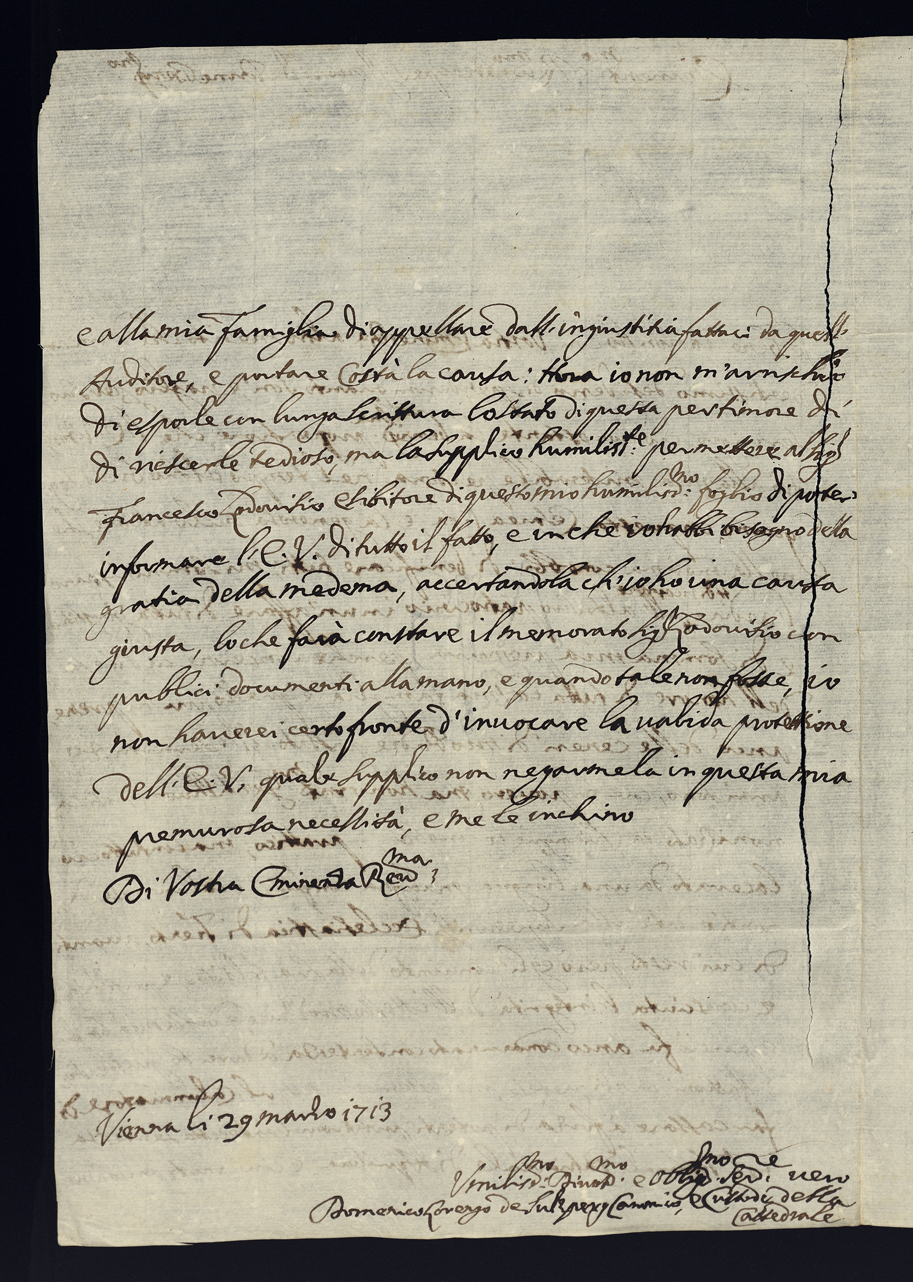 e alla mia Famiglia di appellare dall'ingiustitia fattaci da quest'
Auditore, e portare Costà la causa: Hora io non m'arrischio
di esporle con lunga scrittura lo stato di questa per timore di
di riescerle tedioso, ma la supplico humilis.te permettere al Sig.r
Francesco Lodovisio esibitore di questo mio humiliss.mo foglio di poter
informare l'E. V. di tutto il fatto, e in che io habbi bisogno della
gratia della medema, accertandola ch'io ho una causa
giusta, lo che farà constare il memorato Sig.r Lodovisio con
publici documenti alla mano, e quando tale non fosse, io
non haverei certo fronte d'invocare la valida protettione
dell'E. V., quale supplico non negarmela in questa mia
premurosa necessità, e me le inchino
Di Vostra Eminenza Rev.ma
Vienna li 29 marzo 1713
Umiliss.mo Divot.mo e Oblig.mo Ser.re vero
Domenico Lorenzo de Canonico, e Custode della
Cattedrale